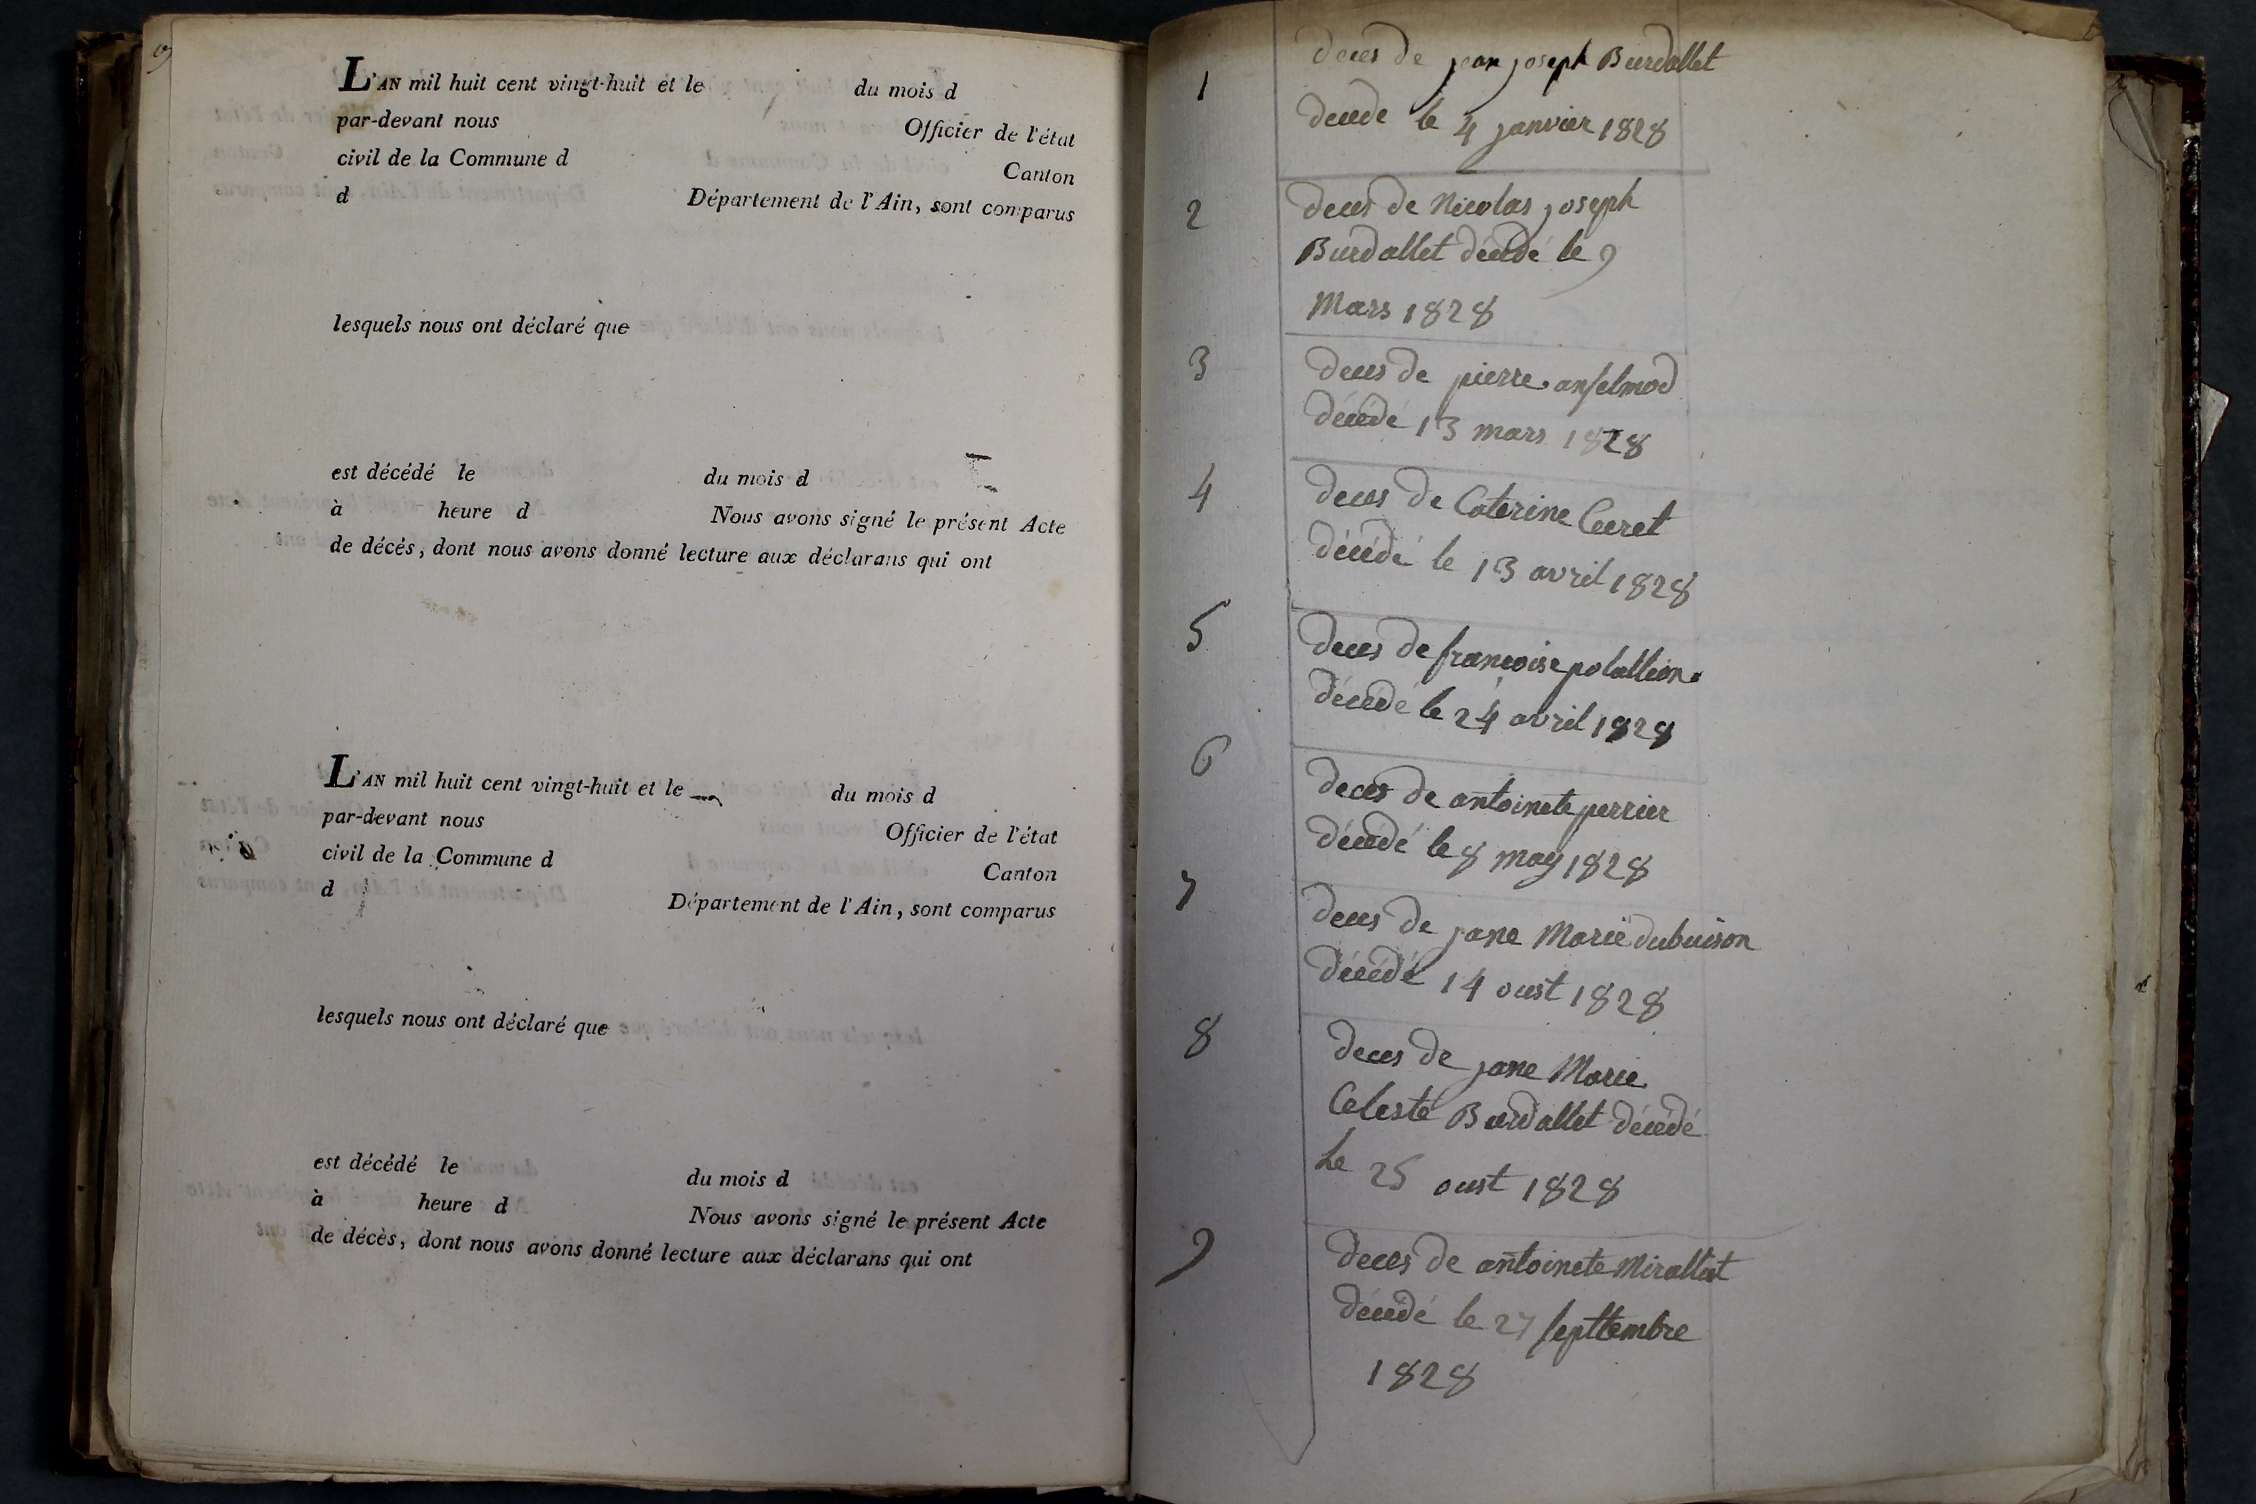 L'AN mil huit cent vingt-huit et le du mois d
par-devant nous Officier de l'état
civil de la Commune d Canton
d Département de l'Ain, sont comparus
lesquels nous ont déclaré que
est décédé le du mois d
à heure d Nous avons signé le présent Acte
de décès, dont nous avons donné lecture aux déclarans qui ont
L'AN mil huit cent vingt-huit et le du mois d
par-devant nous Officier de l'état
civil de la Commune d Canton
d Département de l'Ain, sont comparus
lesquels nous ont déclaré que
est décédé le du mois d
à heure d Nous avons signé le présent Acte
de décès, dont nous avons donné lecture aux déclarans qui ont
1 deces de jean joseph Burdallet
decede le 4 janvier 1828
2 deces de Nicolas joseph
Burdallet décédé le 9
Mars 1828
3 deces de pierre anselmod
décédé 13 mars 1828
4 deces de Caterine Ceret
décédé le 13 avril 1828
5 deces de francoise polallion
décédé le 24 avril 1828
6 deces de antoinete perrier
décédé le 8 may 1828
7 deces de jane Marie dubuison
décédé 14 oust 1828
8 deces de jane Marie
Celeste Burdallet décédé
Le 25 oust 1828
9 deces de antoinete Mirallet
décédé le 27 septtembre
1828